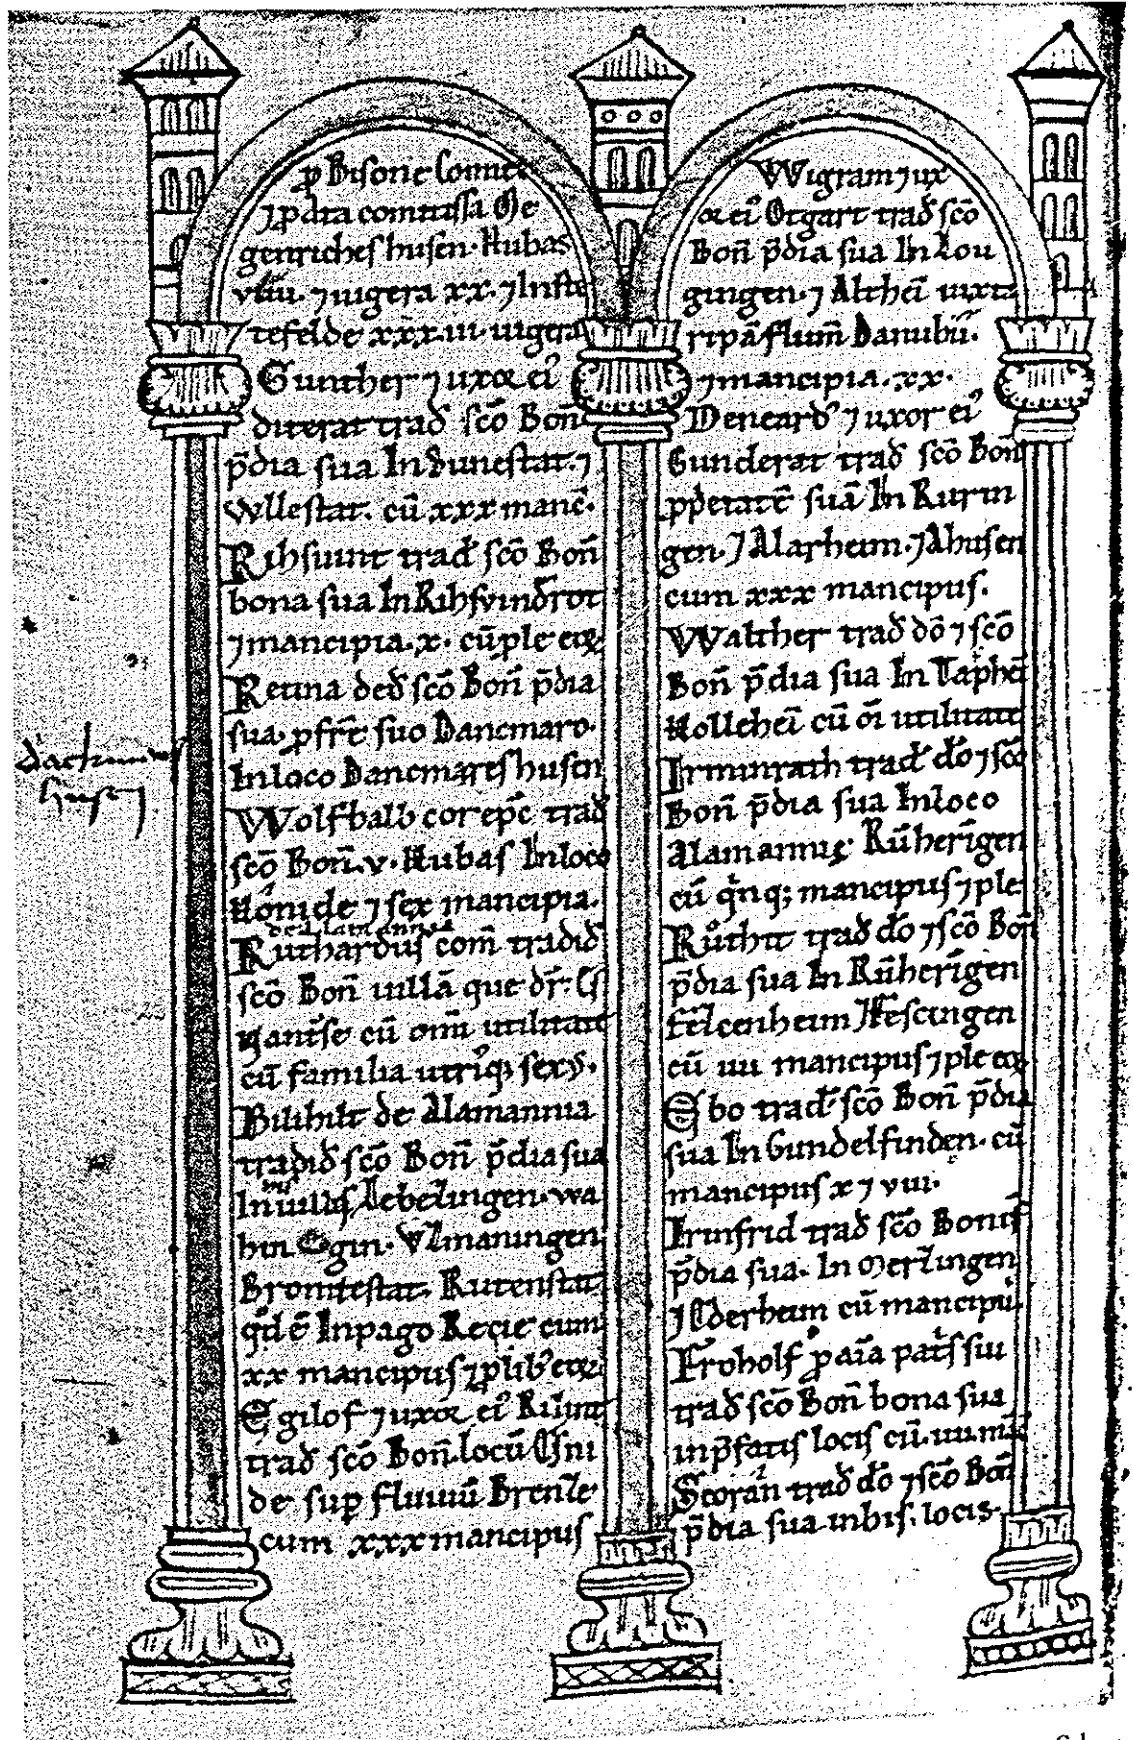 ꝓ Bisone Comite
⁊ p̄dicta comitissa Me
genricheshusen· Hubas
VIII· ⁊ iugera xx· ⁊ In ste
tefelde xxx·III· iugera
Gunther ⁊ uxor ei᾽
diterat trad̄ sc̄o Bon̄
p̄dia sua In Dunestat·⁊
Wllestat· cū xxx manc̄·
Rihsuint trad̄ sc̄o Bon̄
bona sua In Rihsvinderot
⁊ mancipia· x· cū ple eoꝝ
Reuna ded̄ sc̄o Bon̄ p̄dia
sua· ꝓ fr̄e suo Dancmaro·
In loco Dancmareshusen
Wolfbalb corep̄c trad̄
sc̄o Bon̄· v· Hubas In loco
Honide ⁊ sex mancipia·
de alamannia
Ruthardus com̄ tradid̄
sc̄o Bon̄ uillā que dr̄·
cū om̄i utilitate
cū familia utriꝰq sexꝰ·
Bilihilt de Alamannia
tradid̄ sc̄o Bon̄ p̄dia sua
In uillis Lebelungen· Wa
hin Egin· Vlmaningen
Bromtestat· Rutenstat
qd ē In pago Recie cum
xx mancipiis ⁊ ꝓlib᾽ eoꝝ
Egilof ⁊ uxor ei᾽ Rilint
trad̄ sc̄o Bon̄· locū Gni
de sup fluuiū Brenze·
cum xxx mancipiis
Wigram ⁊ ux
or ei᾽ Otgart trad̄ sc̄o
Bon̄ p̄dia sua In Lou
gingen· ⁊ Altheī iuxta
ripā flum̄ Danubii·
⁊ mancipia· xx·
Deneard᾽ ⁊ uxor ei᾽
Gunderat trad̄ sc̄o Bon̄
pp̄etatē suā In Rurin
gen· ⁊ Alarheim· ⁊ Ahusen
cum xxx mancipiis·
Walther trad̄ dō ⁊ sc̄o
Bon̄ p̄dia sua In Taphē
Holleheī cū oī utilitate
Irminrath trad̄ dō ⁊ sc̄o
Bon̄ p̄dia sua In loco
Alamannie· Ruheringen
cū qnq; mancipiis ⁊ ple·
Ruthit trad̄ dō ⁊ sc̄o Bon̄
p̄dia sua In Ruheringen
telcenheim ⁊ Fescingen
cū uii mancipiis ⁊ ple eoꝝ
Ebo trad̄ sc̄o Bon̄ p̄dia
sua In Gundelfinden· cū
mancipiis x ⁊ VIII·
Irinfrid trad̄ sc̄o Bonif
p̄dia sua· In Merlingen
⁊ Ederheim cū mancipiis·
Froholf ꝓ aīa pat̄s sui
trad̄ sc̄o Bon̄ bona sua
in p̄fatis locis cū·
Scoran trad̄ dō ⁊ sc̄o Bon̄
p̄dia sua in his· locis·